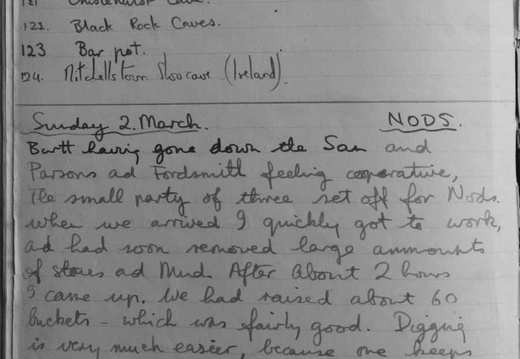 121 Chislehurst Cave.
122. Black Rock Caves.
123 Bar pot.
124. Mitchellstown Show cave (Ireland).
Sunday 2. March. NODS.
Burtt having gone down the San and
Parsons ad Fordsmith feeling cooperative,
The small party of three set off for Nods.
when we arrived I quickly got to work,
ad had soon removed large ammounts
of stones ad Mud. After about 2 hours
I came up. We had raised about 60
buckets – which was fairly good. Digging
is very much easier, because one keeps